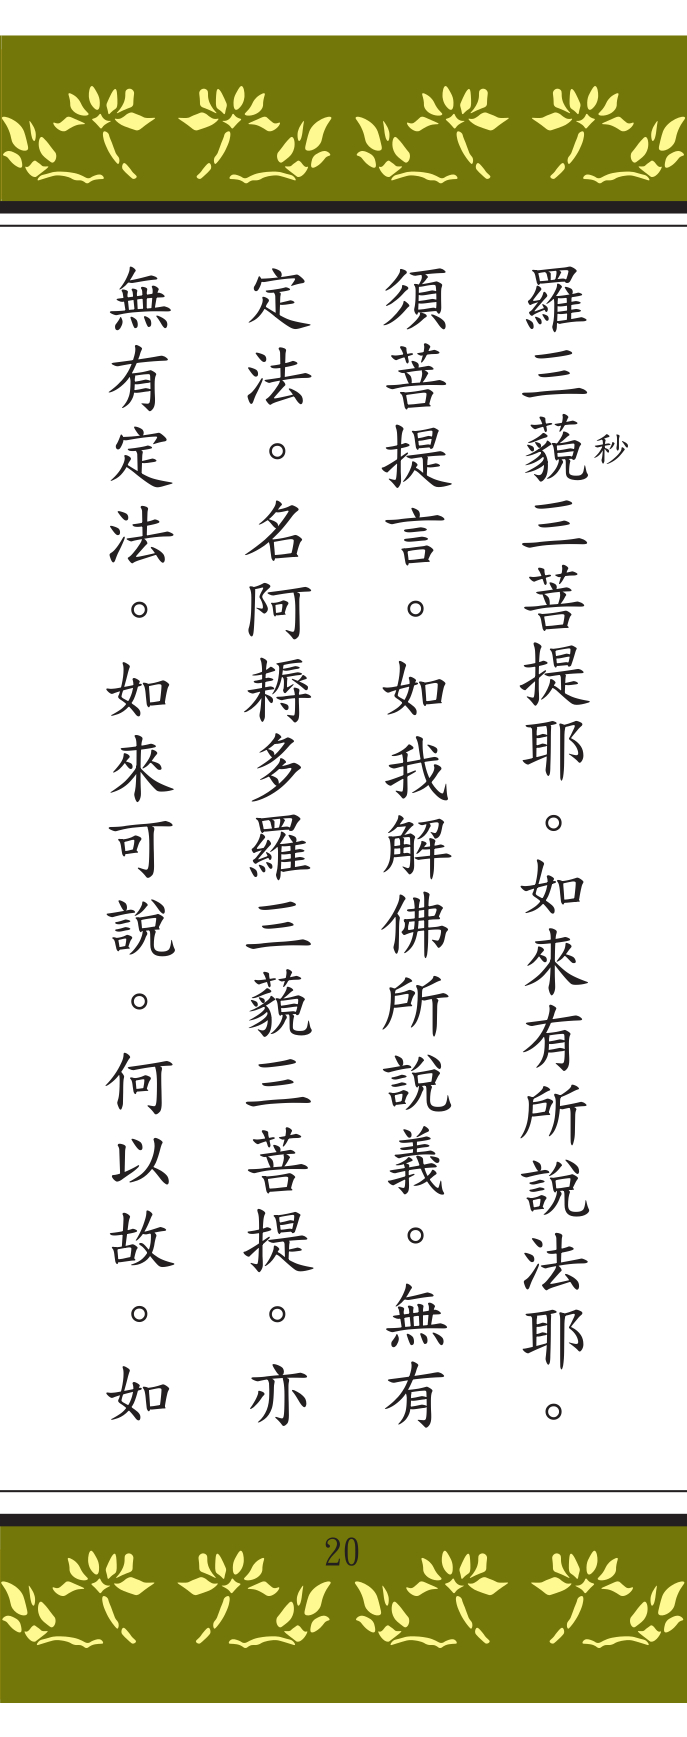 羅三藐秒三菩提耶。如來有所說法耶。
須菩提言。如我解佛所說義。無有
定法。名阿耨多羅三藐三菩提。亦
無有定法。如來可說。何以故。如
20